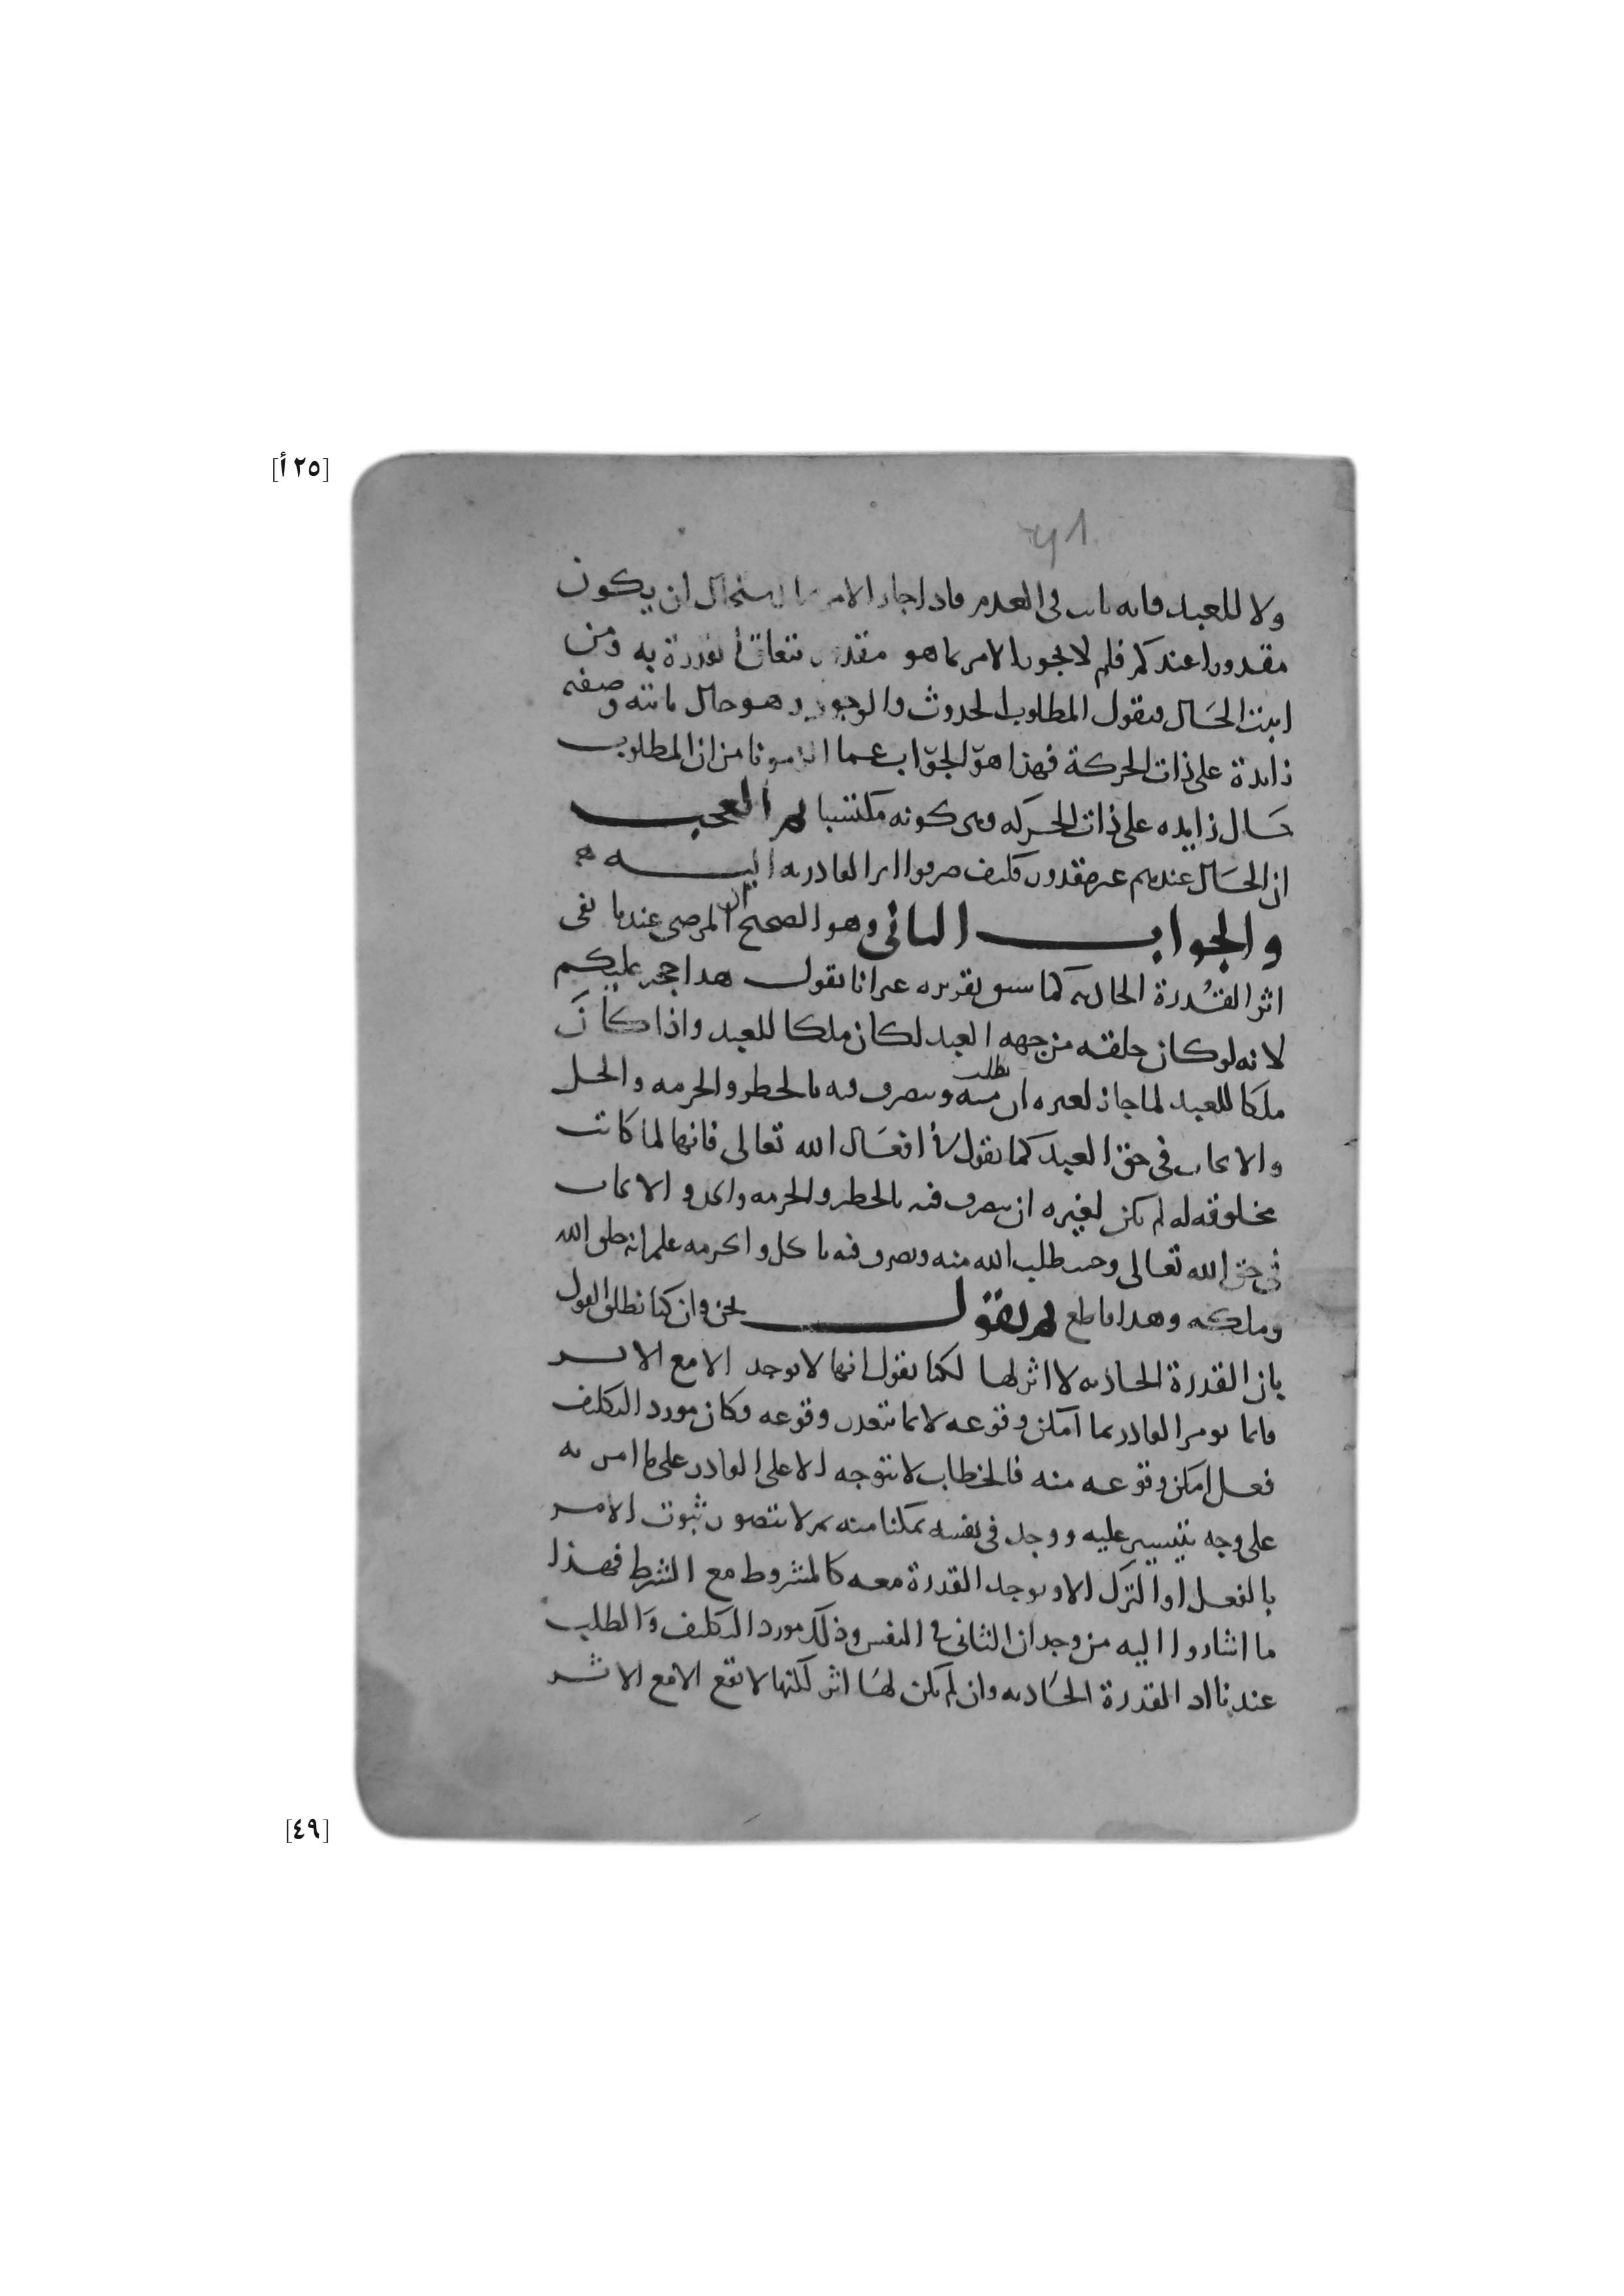 [٢٥ أ]
ولا للعبد فانه ثابت في العدم فاذا جاز الامر بما استحال ان يكون
مقدورا عندكم فلم لا يجوز الامر بما هو مقدور تتعلق القدرة به ومن
اثبت الحال فيقول المطلوب الحدوث والوجود وهو حال ثابتة وصفة
زائدة على ذات الحركة فهذا هو الجواب عما الزمونا من ان المطلوب
حال زايده على ذات الحركه وهي كونه مكتسبا ثم العجب
ان الحال عندهم غير مقدور فكيف صرفوا اثر القادرية اليه
والجواب الثاني وهو الصحيح المرضي عندنا نفي
اثر القدرة الحادثه كما سبق تقريره غير انا نقول هذا حجة عليكم
لانه لو كان خلقه من جهه العبد لكان ملكا للعبد واذا كان
ملكا للعبد لما جاز لغيره ان يطلب منه ويتصرف فيه بالحظر والحرمه والحل
والايجاب في حق العبد كما نقول في افعال الله تعالى فانها لما كانت
مخلوقه له لم يكن لغيره ان يتصرف فيه بالحظر والحرمه والحل والايجاب
في حق الله تعالى وحيث طلب الله منه وتصرف فيه بالحل والحرمه علم انه خلق الله
وملكه وهذا قاطع ثم نقول نحن وان كنا نطلق القول
بان القدرة الحادثه لا اثر لها لكنا نقول انها لا توجد الا مع الاثر
فانما يومر القادر بما امكن وقوعه لا بما يتعذر وقوعه وكان مورد التكليف
فعل امكن وقوعه منه فالخطاب لا يتوجه الا على القادر على ما امر به
على وجه يتيسر عليه ووجد في نفسه تمكنا منه ثم لا يتصور ثبوت الامر
بالفعل او الترك الا وتوجد القدرة معه كالمشروط مع الشرط فهذا
ما اشاروا اليه من وجدان الثاني في النفس وذلك مورد التكليف والطلب
عندنا اذ القدرة الحادثه وان لم يكن لها اثر لكنها لا تقع الا مع الاثر
[٤٩]